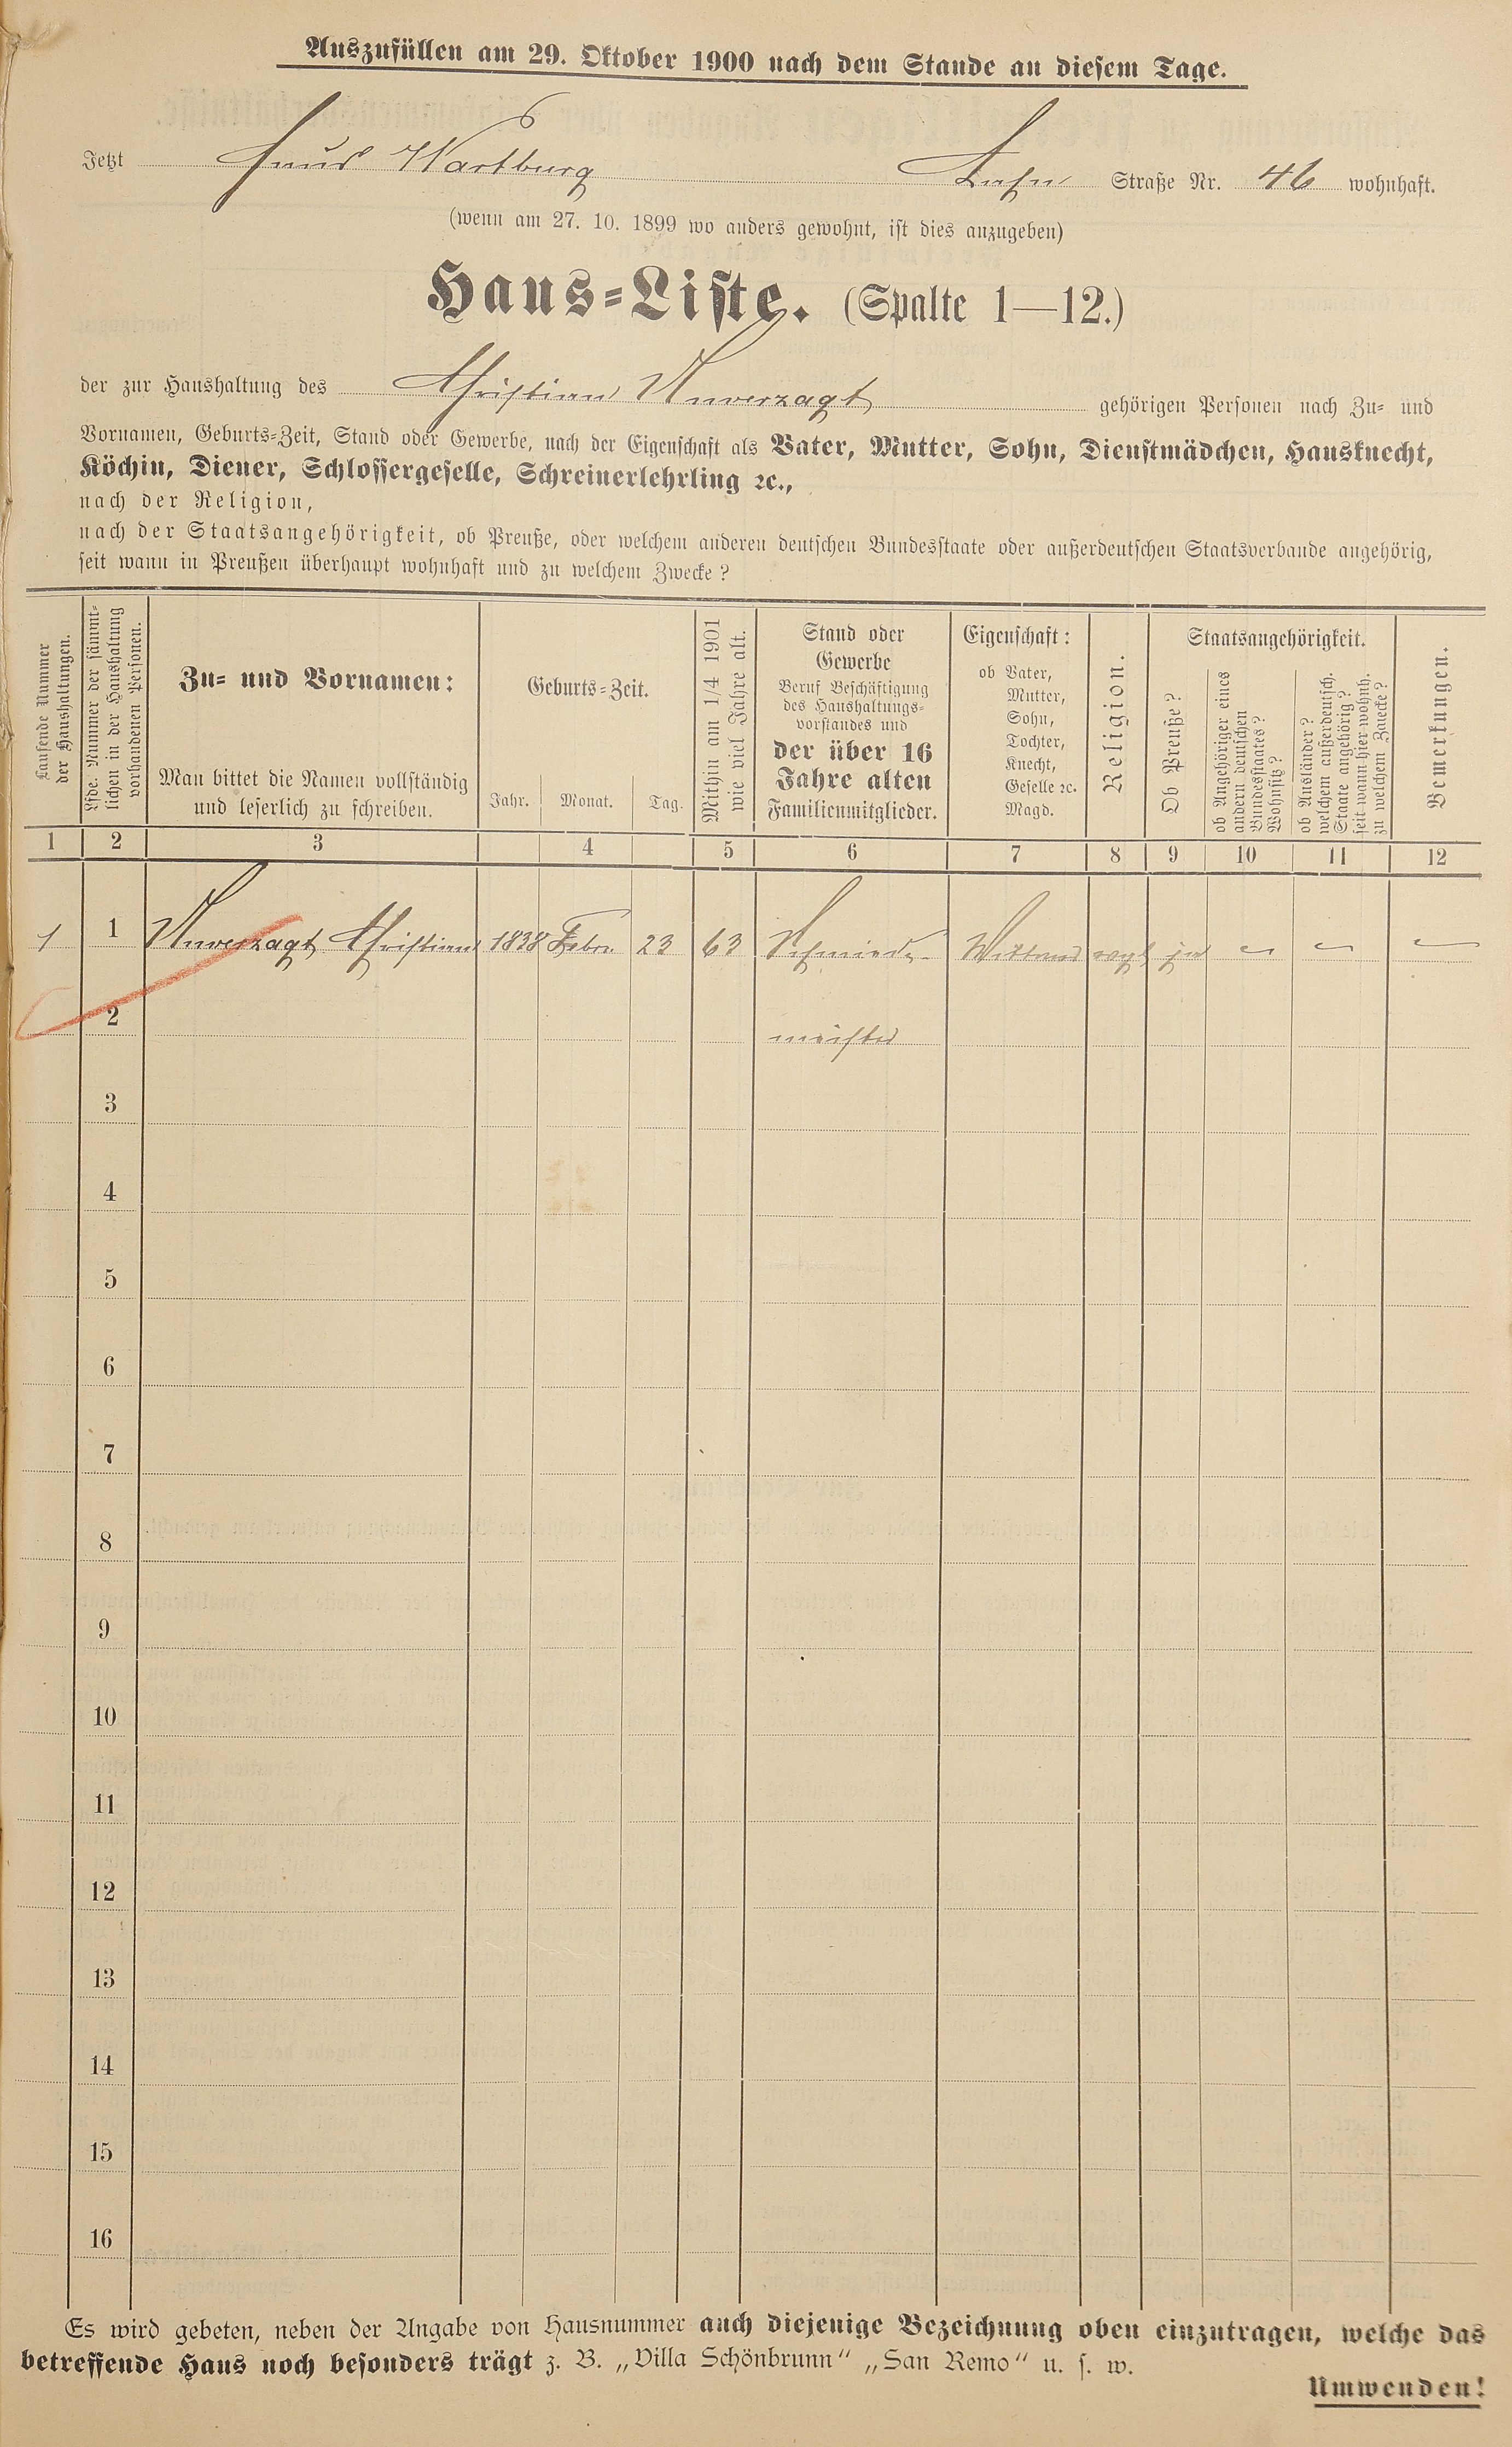 Auszufüllen am 29. Oktober 1900 nach dem Stande an diesem Tage.
Jetzt Haus Wartburg Lahn Straße Nr. 46 wohnhaft.
(wenn am 27. 10. 1899 wo anders gewohnt, ist dies anzugeben)
Haus=Liste. (Spalte 1—12.)
der zur Haushaltung des Christian Unverzagt gehörigen Personen nach Zu= und
Vornamen, Geburts=Zeit, Stand oder Gewerbe, nach der Eigenschaft als Vater, Mutter, Sohn, Dienstmädchen, Hausknecht,
Köchin, Diener, Schlossergeselle, Schreinerlehrling ꝛc.,
nach der Religion,
nach der Staatsangehörigkeit, ob Preuße, oder welchem anderen deutschen Bundesstaate oder außerdeutschen Staatsverbande angehörig,
seit wann in Preußen überhaupt wohnhaft und zu welchem Zwecke?
Laufende Nummer
der Haushaltungen.
Lfde. Nummer der sämmt=
lichen in der Haushaltung
vorhandenen Personen.
Zu= und Vornamen:
Man bittet die Namen vollständig
und leserlich zu schreiben.
Geburts=Zeit.
Jahr. Monat. Tag.
Mithin am 1/4 1901
wie viel Jahre alt.
Stand oder
Gewerbe
Beruf Beschäftigung
des Haushaltungs=
vorstandes und
der über 16
Jahre alten
Familienmitglieder.
Eigenschaft:
ob Vater,
Mutter,
Sohn,
Tochter,
Knecht,
Geselle ꝛc.
Magd.
Religion.
Staatsangehörigkeit.
Ob Preuße?
ob Angehöriger eines
andern deutschen
Bundesstaates?
Wohnsitz?
ob Ausländer?
welchem außerdeutsch.
Staate angehörig?
seit wann hier wohnh.
zu welchem Zwecke?
Bemerkungen.
1 2 3 4 5 6 7 8 9 10 11 12
1 1 Unverzagt Christian 1838 Febr. 23 63 Schmiede- Wittwer evgl ja — — —
2 meister
3
4
5
6
7
8
9
10
11
12
13
14
15
16
Es wird gebeten, neben der Angabe von Hausnummer auch diejenige Bezeichnung oben einzutragen, welche das
betreffende Haus noch besonders trägt z. B. „Villa Schönbrunn“ „San Remo“ u. s. w.
Umwenden!